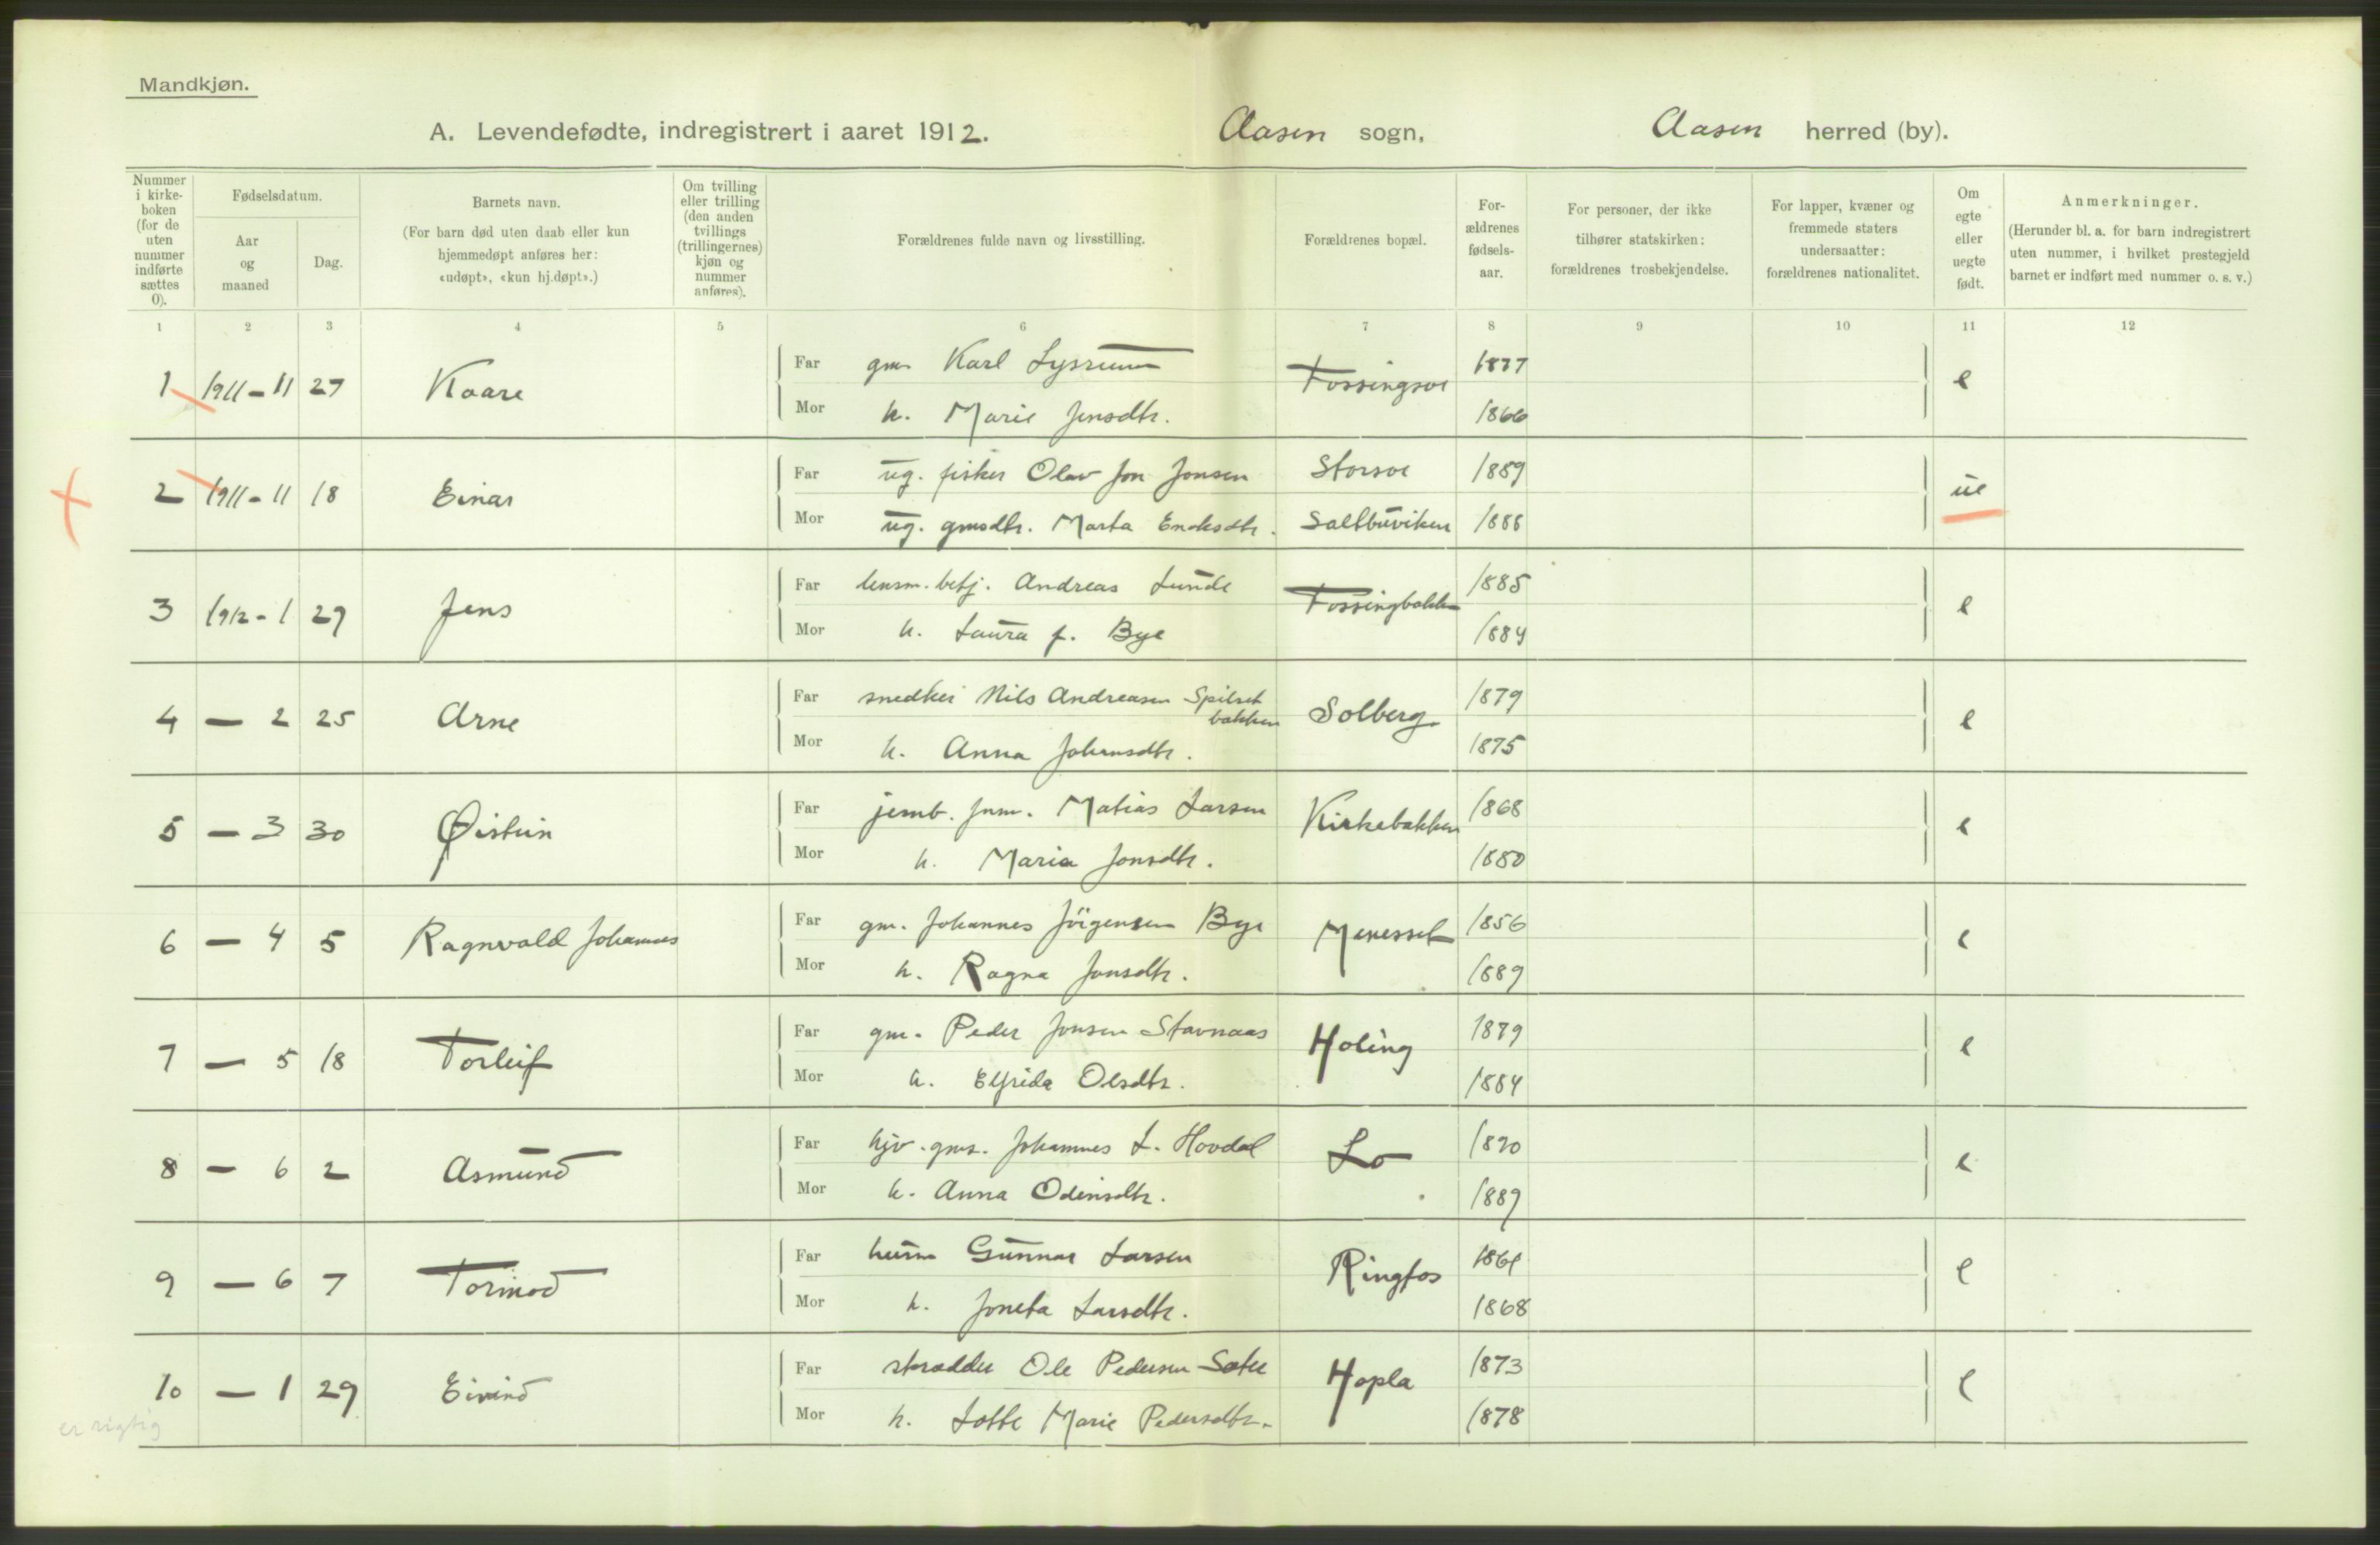 Mandkjøn.
A. Levendefødte, indregistrert i aaret 1912. Aasen sogn, Aasen herred (by).
Nummer i kirke-boken (for de uten nummer indførte sættes 0).
Fødselsdatum.
Aar og maaned
Dag.
Barnets navn.
(For barn død uten daab eller kun hjemmedøpt anføres her: «udøpt», «kun hj.døpt».)
Om tvilling eller trilling (den anden tvillings (trillingernes) kjøn og nummer anføres).
Forældrenes fulde navn og livsstilling.
Forældrenes bopæl.
For-ældrenes fødsels-aar.
For personer, der ikke tilhører statskirken: forældrenes trosbekjendelse.
For lapper, kvæner og fremmede staters undersaatter: forældrenes nationalitet.
Om egte eller uegte født.
Anmerkninger.
(Herunder bl. a. for barn indregistrert uten nummer, i hvilket prestegjeld barnet er indført med nummer o. s. v.)
1 2 3 4 5 6 7 8 9 10 11 12
Far gm. Karl Lyssrum 1877
1 1911-11 27 Kaare Fossingsve e
Mor h. Marie Jensdtr. 1866
Far ug. fisker Olav Jon Jonsen Storsve 1889
2 1911-11 18 Einar ue
Mor ug. gmsdtr. Marta Enoksdtr. Saltbuviken 1888
Far lensm. betj. Andreas Lunde 1885
3 1912-1 29 Jens Fossingbakken e
Mor h. Laura f. Bye 1884
Far snedker Nils Andreasen Spilset bakken 1879
4 — 2 25 Arne Solberg e
Mor h. Anna Johansdtr. 1875
Far jernb. fm. Matias Larsen 1868
5 — 3 30 Øistein Kirkebakken e
Mor h. Maria Jonsdtr. 1880
Far gm. Johannes Jörgensen Bye 1856
6 — 4 5 Ragnvald Johannes Menesset e
Mor h. Ragna Jonsdtr. 1889
Far gm. Peder Jonsen Stavnaas 1879
7 — 5 18 Torleif Holing e
Mor h. Elfrida Olsdtr. 1884
Far hjv. gms. Johannes L. Hovdal 1890
8 — 6 2 Asmund Lo e
Mor h. Anna Odinsdtr. 1889
Far husm Gunnar Larsen 1861
9 — 6 7 Tormod Ringfos e
Mor h. Joneta Larsdtr. 1868
Far skrædder Ole Pedersen Sæter 1873
10 — 1 29 Eivind Hopla e
Mor h. Lotte Marie Pedersdtr. 1878
er rigtig